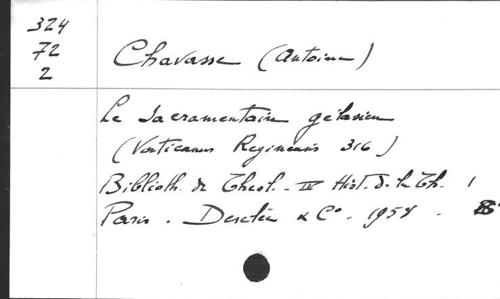 324
72
2
Chavasse (Antoine)
Le Sacramentaire gélasien
(Vaticanus Reginensis 316)
Biblioth. de Théol. - IV Hist. de la Th. 1
Paris. Desclée & Co. 1958.